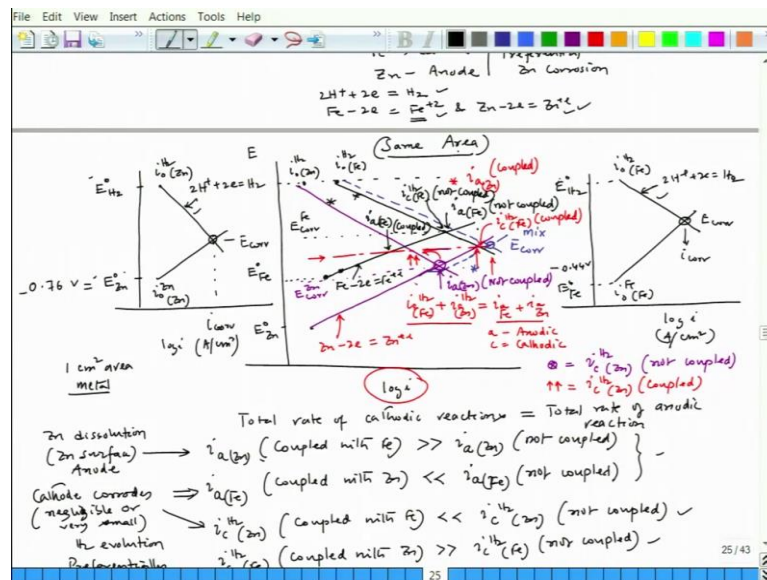 File Edit View Insert Actions Tools Help
Zn - Anode
Zn Corrosion
2H⁺ + 2e = H₂
Fe - 2e = Fe⁺² & Zn - 2e = Zn⁺²
(Same Area)
E
E°H₂
i₀ H₂ (Zn)
2H⁺ + 2e = H₂
Ecorr
-0.76 V = E°Zn
i₀ Zn (Zn)
icorr
log i (A/cm²)
i₀ H₂ (Zn)
i₀ H₂ (Fe)
* ia(Zn) (coupled)
ic H₂ (Fe) (not coupled)
ia(Fe) (not coupled)
ia(Fe) (coupled)
ic H₂ (Fe) (coupled)
Ecorr Fe
Ecorr mix
E°Fe
Fe - 2e = Fe⁺²
ia(Zn) (Not coupled)
Ecorr Zn
ic H₂ (Fe) + ic H₂ (Zn) = ia Fe + ia Zn
a - Anodic
c = Cathodic
E°Zn
Zn - 2e = Zn⁺²
log i
E°H₂
i₀ H₂ (Fe)
2H⁺ + 2e = H₂
Ecorr
icorr
-0.44 V
E°Fe
i₀ Fe (Fe)
log i
(A/cm²)
⊗ = ic H₂ (Zn) (not coupled)
↑↑ = ic H₂ (Zn) (coupled)
1 cm² area
metal
Total rate of cathodic reactions = Total rate of anodic
reaction
Zn dissolution
(Zn surface)
Anode
→ ia(Zn) (Coupled with Fe) >> ia(Zn) (not coupled)
Cathode corrodes
(negligible or
very small)
⇒ ia(Fe) (Coupled with Zn) << ia(Fe) (not coupled)
ic H₂ (Zn) (Coupled with Fe) << ic H₂ (Zn) (not coupled)
H₂ evolution
Preferentially
ic H₂ (Fe) (Coupled with Zn) >> ic H₂ (Fe) (not coupled)
25/43
25